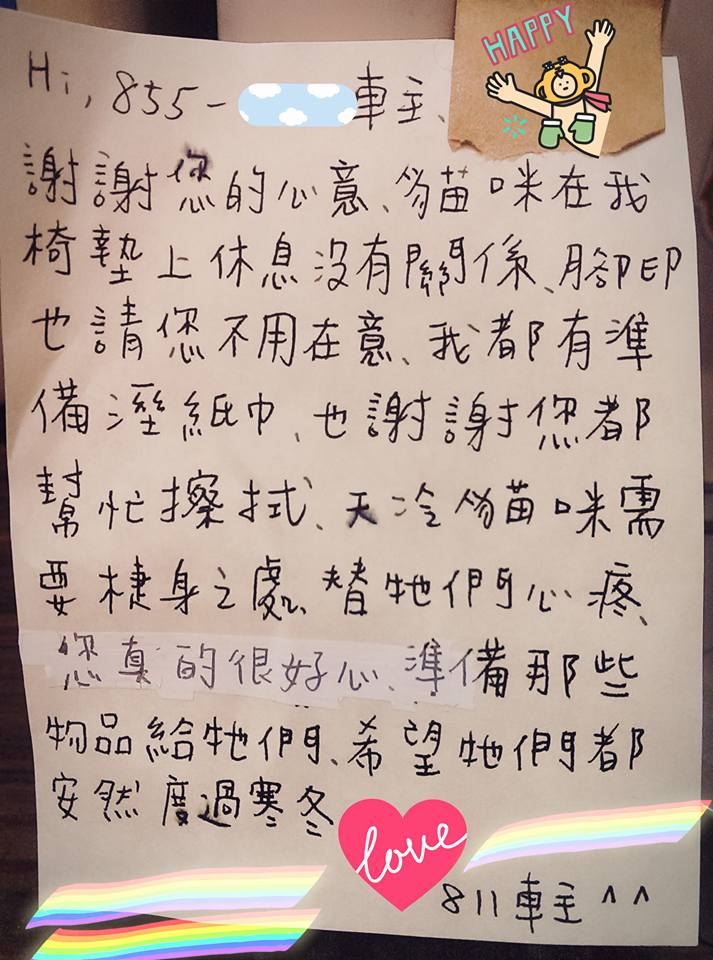 HAPPY
Hi, 855-車主、
謝謝您的心意、貓咪在我
椅墊上休息沒有關係、腳印
也請您不用在意、我都有準
備溼紙巾、也謝謝您都
幫忙擦拭、天冷貓咪需
要棲身之處、替牠們心疼、
您真的很好心、準備那些
物品給牠們、希望牠們都
安然度過寒冬
love
811車主^^